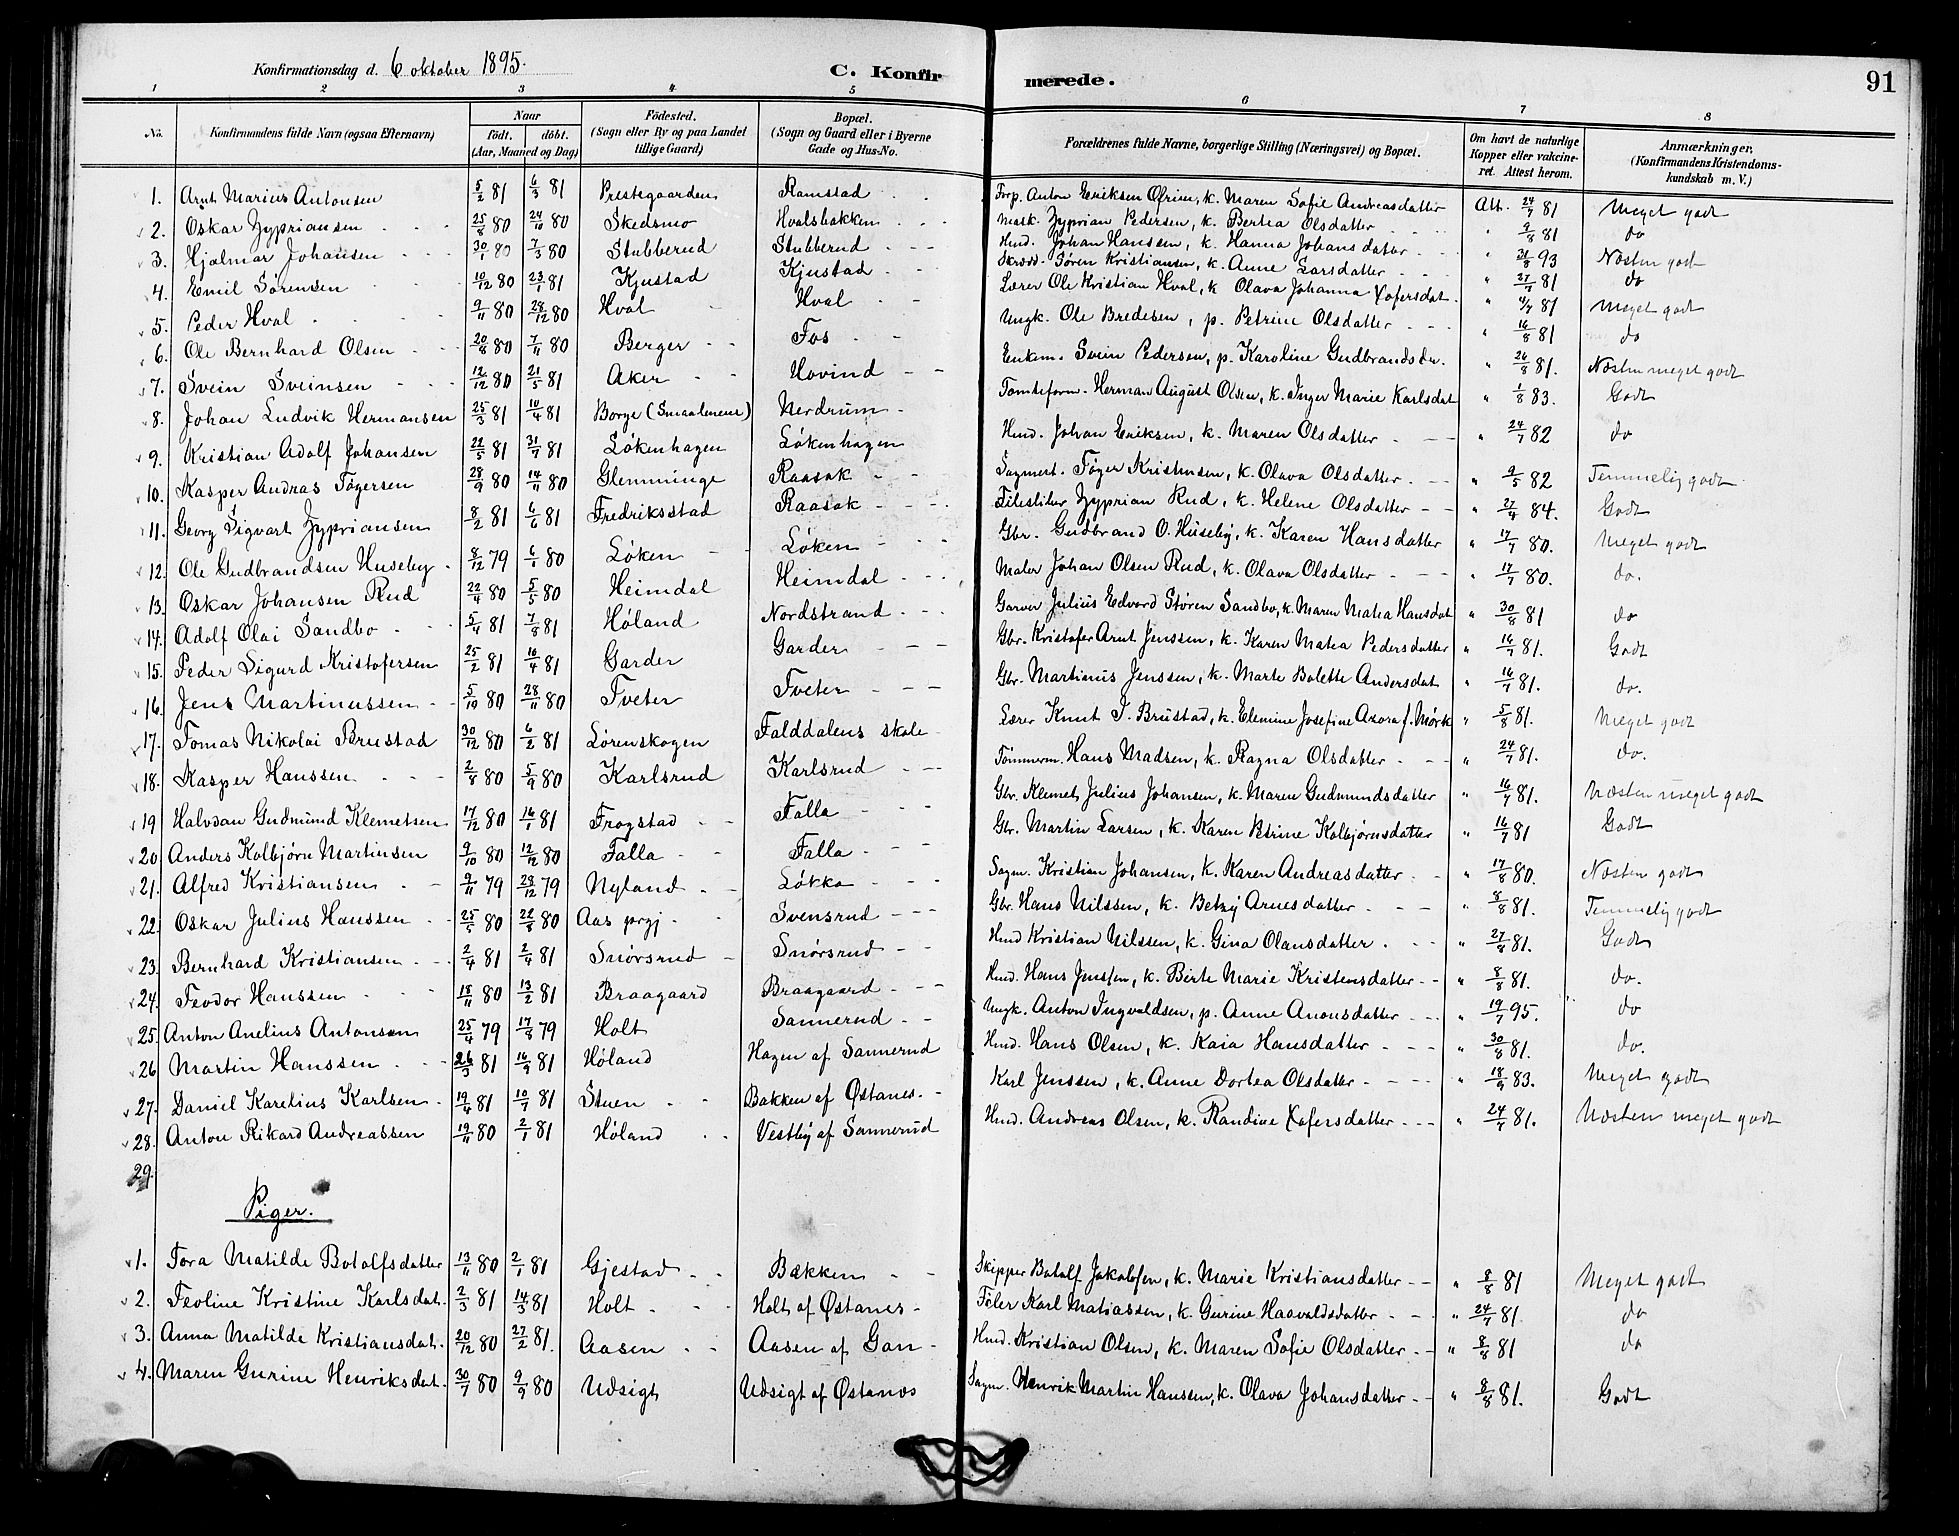 Konfirmationsdag d. 6 oktober 1895. C. Konfirmerede. 91
1 2 3 4 5 6 7 8
No. Konfirmandens fulde Navn (ogsaa Efternavn) Naar födt. döbt. (Aar, Maaned og Dag) Födested. (Sogn eller By og paa Landet tillige Gaard) Bopæl. (Sogn og Gaard eller i Byerne Gade og Hus-No. Forældrenes fulde Navne, borgerlige Stilling (Næringsvei) og Bopæl. Om havt de naturlige Kopper eller vakcineret. Attest herom. Anmærkninger. (Konfirmandens Kristendomskundskab m. V.)
1. Arnt Marius Antonsen 5/2 81 6/3 81 Prestegaarden Ramstad Forp. Anton Eriksen Øfrin, k. Maren Sofie Andreasdatter Att. 24/7 81 Meget godt
2. Oskar Zypriansen 25/8 80 24/10 80 Skedsmo Hvalsbakken Mask. Zyprian Pedersen, k. Bertea Olsdatter " 9/8 81 do
3. Hjalmar Johansen 30/1 80 7/3 80 Stubberud Stubberud Hmd. Johan Hanssen, k. Hanna Johansdatter " 31/8 93 Næsten godt
4. Emil Sørensen 10/12 80 23/1 81 Kjustad Kjustad Skræd. Søren Kristiansen, k. Anne Larsdatter " 27/7 81 do
5. Peder Hval 9/11 80 28/12 80 Hval Hval Lærer Ole Kristian Hval, k Olava Johanna Xofersdat " 4/7 81 Meget godt
6. Ole Bernhard Olsen 20/8 80 7/11 80 Berger Fos Ungk. Ole Bredesen, p. Petrine Olsdatter " 16/8 81 do
7. Svein Sveinsen 12/12 80 21/5 81 Aker Hovind Enkem. Svein Pedersen, p. Karoline Gudbrandsdr. " 26/8 81. Næsten meget godt
8. Johan Ludvik Hermansen 25/3 81 10/4 81 Borge (Smaalenene) Nerdrum Tomteform. Herman August Olsen, k. Inger Marie Karlsdat " 1/8 83. Godt
9. Kristian Adolf Johansen 22/5 81 31/7 81 Løkenhagen Løkenhagen Hmd. Johan Eriksen, k. Maren Olsdatter " 24/7 82 do
10. Kasper Andras Tøgersen 28/9 80 14/11 80 Glemminge Raasok Sagmest. Tøger Kristensen, k. Olava Olsdatter " 9/5 82 Temmelig godt
11. Georg Sigvart Zypriansen 8/2 81 6/6 81 Fredriksstad Raasok Filestiler Zyprian Rud, k. Helene Olsdatter " 27/4 84. Godt
12. Ole Gudbrandsen Huseby 8/12 79 6/1 80 Løken Løken Gbr. Gudbrand O. Huseby, k. Karen Hansdatter " 17/7 80. Meget godt
13. Oskar Johansen Rud 22/4 80 5/5 80 Heimdal Heimdal Maler Johan Olsen Rud, k. Olava Olsdatter " 17/7 80. do.
14. Adolf Olai Sandbo 5/4 81 7/8 81 Høland Nordstrand Garver Julius Edvard Støren Sandbo, k. Maren Matea Hansdat " 30/8 81 do
15. Peder Sigurd Kristofersen 25/2 81 16/4 81 Garder Garder Gbr. Kristofer Arnt Jenssen, k. Karen Matea Pedersdatter " 16/7 81. Godt
16. Jens Martinussen 5/10 80 28/11 80 Tveter Tveter Gbr. Martinus Jenssen, k. Marte Bolette Andersdat " 16/7 81. do.
17. Tomas Nikolai Brustad 30/12 80 6/2 81 Lørenskogen Falddalens skole Lærer Knut T. Brustad, k. Elemine Josefine Axora f. Mørk " 5/8 81. Meget godt
18. Kasper Hanssen 2/8 80 5/9 80 Karlsrud Karlsrud Tømmerm. Hans Madsen, k. Ragna Olsdatter " 24/7 81. do.
19 Halvdan Gudmund Klemetsen 17/12 80 16/1 81 Frogstad Falla Gbr. Klemet Julius Johansen, k. Maren Gudmundsdatter " 16/7 81. Næsten meget godt
20 Anders Kolbjørn Martinsen 9/10 80 12/12 80 Falla Falla Gbr. Martin Larsen, k. Karen Petrine Kolbjørnsdatter " 16/7 81 Godt
21. Alfred Kristiansen 9/11 79 28/12 79 Nyland Løkka Sagm. Kristian Johansen, k. Karen Andreasdatter " 17/8 80. Næsten godt
22. Oskar Julius Hanssen 25/5 80 22/8 80 Aas prgj Svensrud Gbr. Hans Nilssen, k. Betzy Arnesdatter " 8/8 81. Temmelig godt
23. Bernhard Kristiansen 2/4 81 2/4 81 Snørsrud Snørsrud Hmd Kristian Nilssen, k. Gina Olausdatter " 27/8 81. Godt
24. Feodor Hanssen 18/11 80 13/2 81 Braagaard Braagaard Hmd. Hans Jenssen, k. Birte Marie Kristensdatter " 8/8 81. do.
25. Anton Anelius Antonsen 25/4 79 17/8 79 Holt Sannerud Ungk. Anton Ingvaldsen, p. Anne Anonsdatter " 19/7 95. do
26 Martin Hanssen 26/3 81 16/9 81 Høland Hagen af Sannerud Hmd. Hans Olsen, k. Kaia Hansdatter " 30/8 81. do.
27. Daniel Karelius Karlsen 19/4 81 10/7 81 Stuen Bakken af Østanes Karl Jenssen, k. Anne Dortea Olsdatter " 18/9 83. Meget godt
28. Anton Rikard Andreassen 19/11 80 2/1 81 Høland Vestby af Sannerud Hmd. Andreas Olsen, k. Randine Xofersdatter " 24/7 81. Næsten meget godt
29.
Piger.
1. Tora Matilde Botolfsdatter 13/11 80 2/1 81 Gjestad Bækken Skipper Botolf Jakobsen, k. Marie Kristiansdatter " 8/8 81 Meget godt
2. Feoline Kristine Karlsdat. 2/3 81 14/3 81 Holt Holt af Østanes Filer Karl Matiassen, k. Gurine Haavaldsdatter " 24/7 81. do
3. Anna Matilde Kristiansdat. 20/12 80 27/2 81. Aasen Aasen af Gan Hmd. Kristian Olsen, k. Maren Sofie Olsdatter " 8/8 81 do
4. Maren Gurine Henriksdat. 30/7 80 9/9 80 Udsigt Udsigt af Østanes Sagm. Henrik Martin Hansen, k. Olava Johansdatter " 8/8 81. Godt